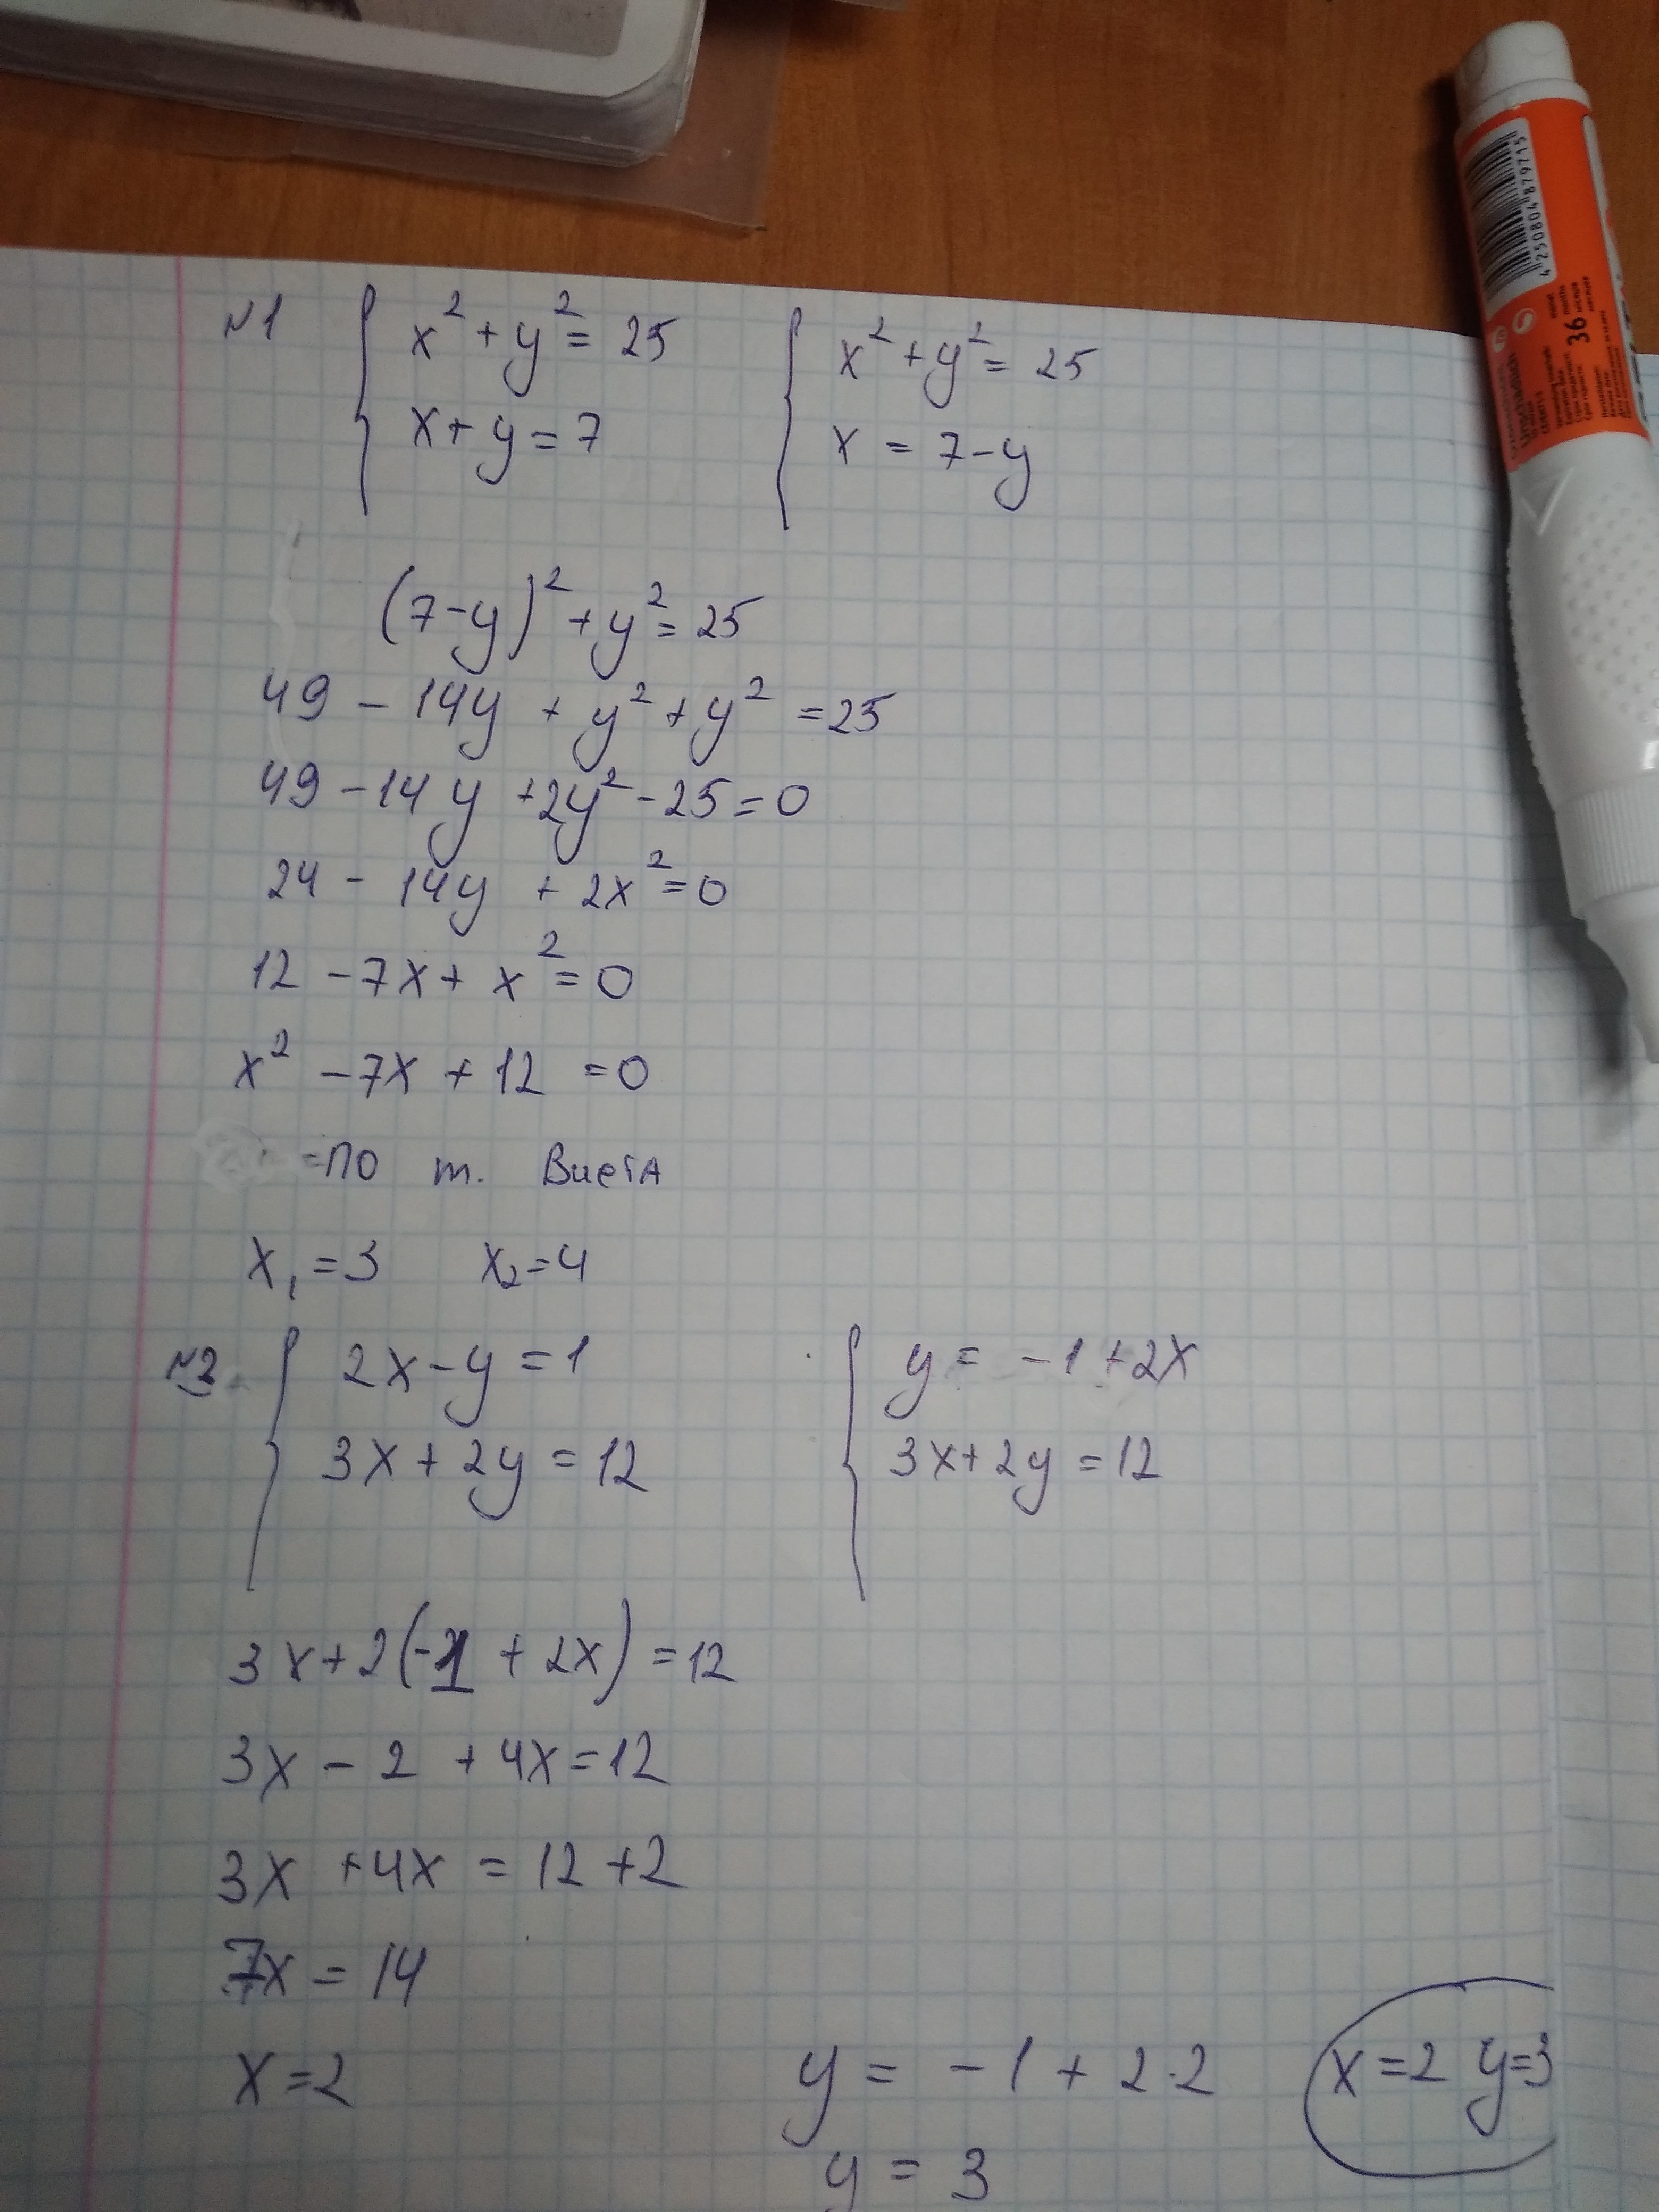 №1 { x² + y² = 25 { x² + y² = 25
x + y = 7 x = 7 - y
(7-y)² + y² = 25
49 - 14y + y² + y² = 25
49 - 14y + 2y² - 25 = 0
24 - 14y + 2x² = 0
12 - 7x + x² = 0
x² - 7x + 12 = 0
= по т. Виета
x₁ = 3 x₂ = 4
№2 { 2x - y = 1 { y = -1 + 2x
3x + 2y = 12 3x + 2y = 12
3x + 2(-1 + 2x) = 12
3x - 2 + 4x = 12
3x + 4x = 12 + 2
7x = 14
x = 2 y = -1 + 2·2 x = 2 y = 3
y = 3
4 250804 879715
36